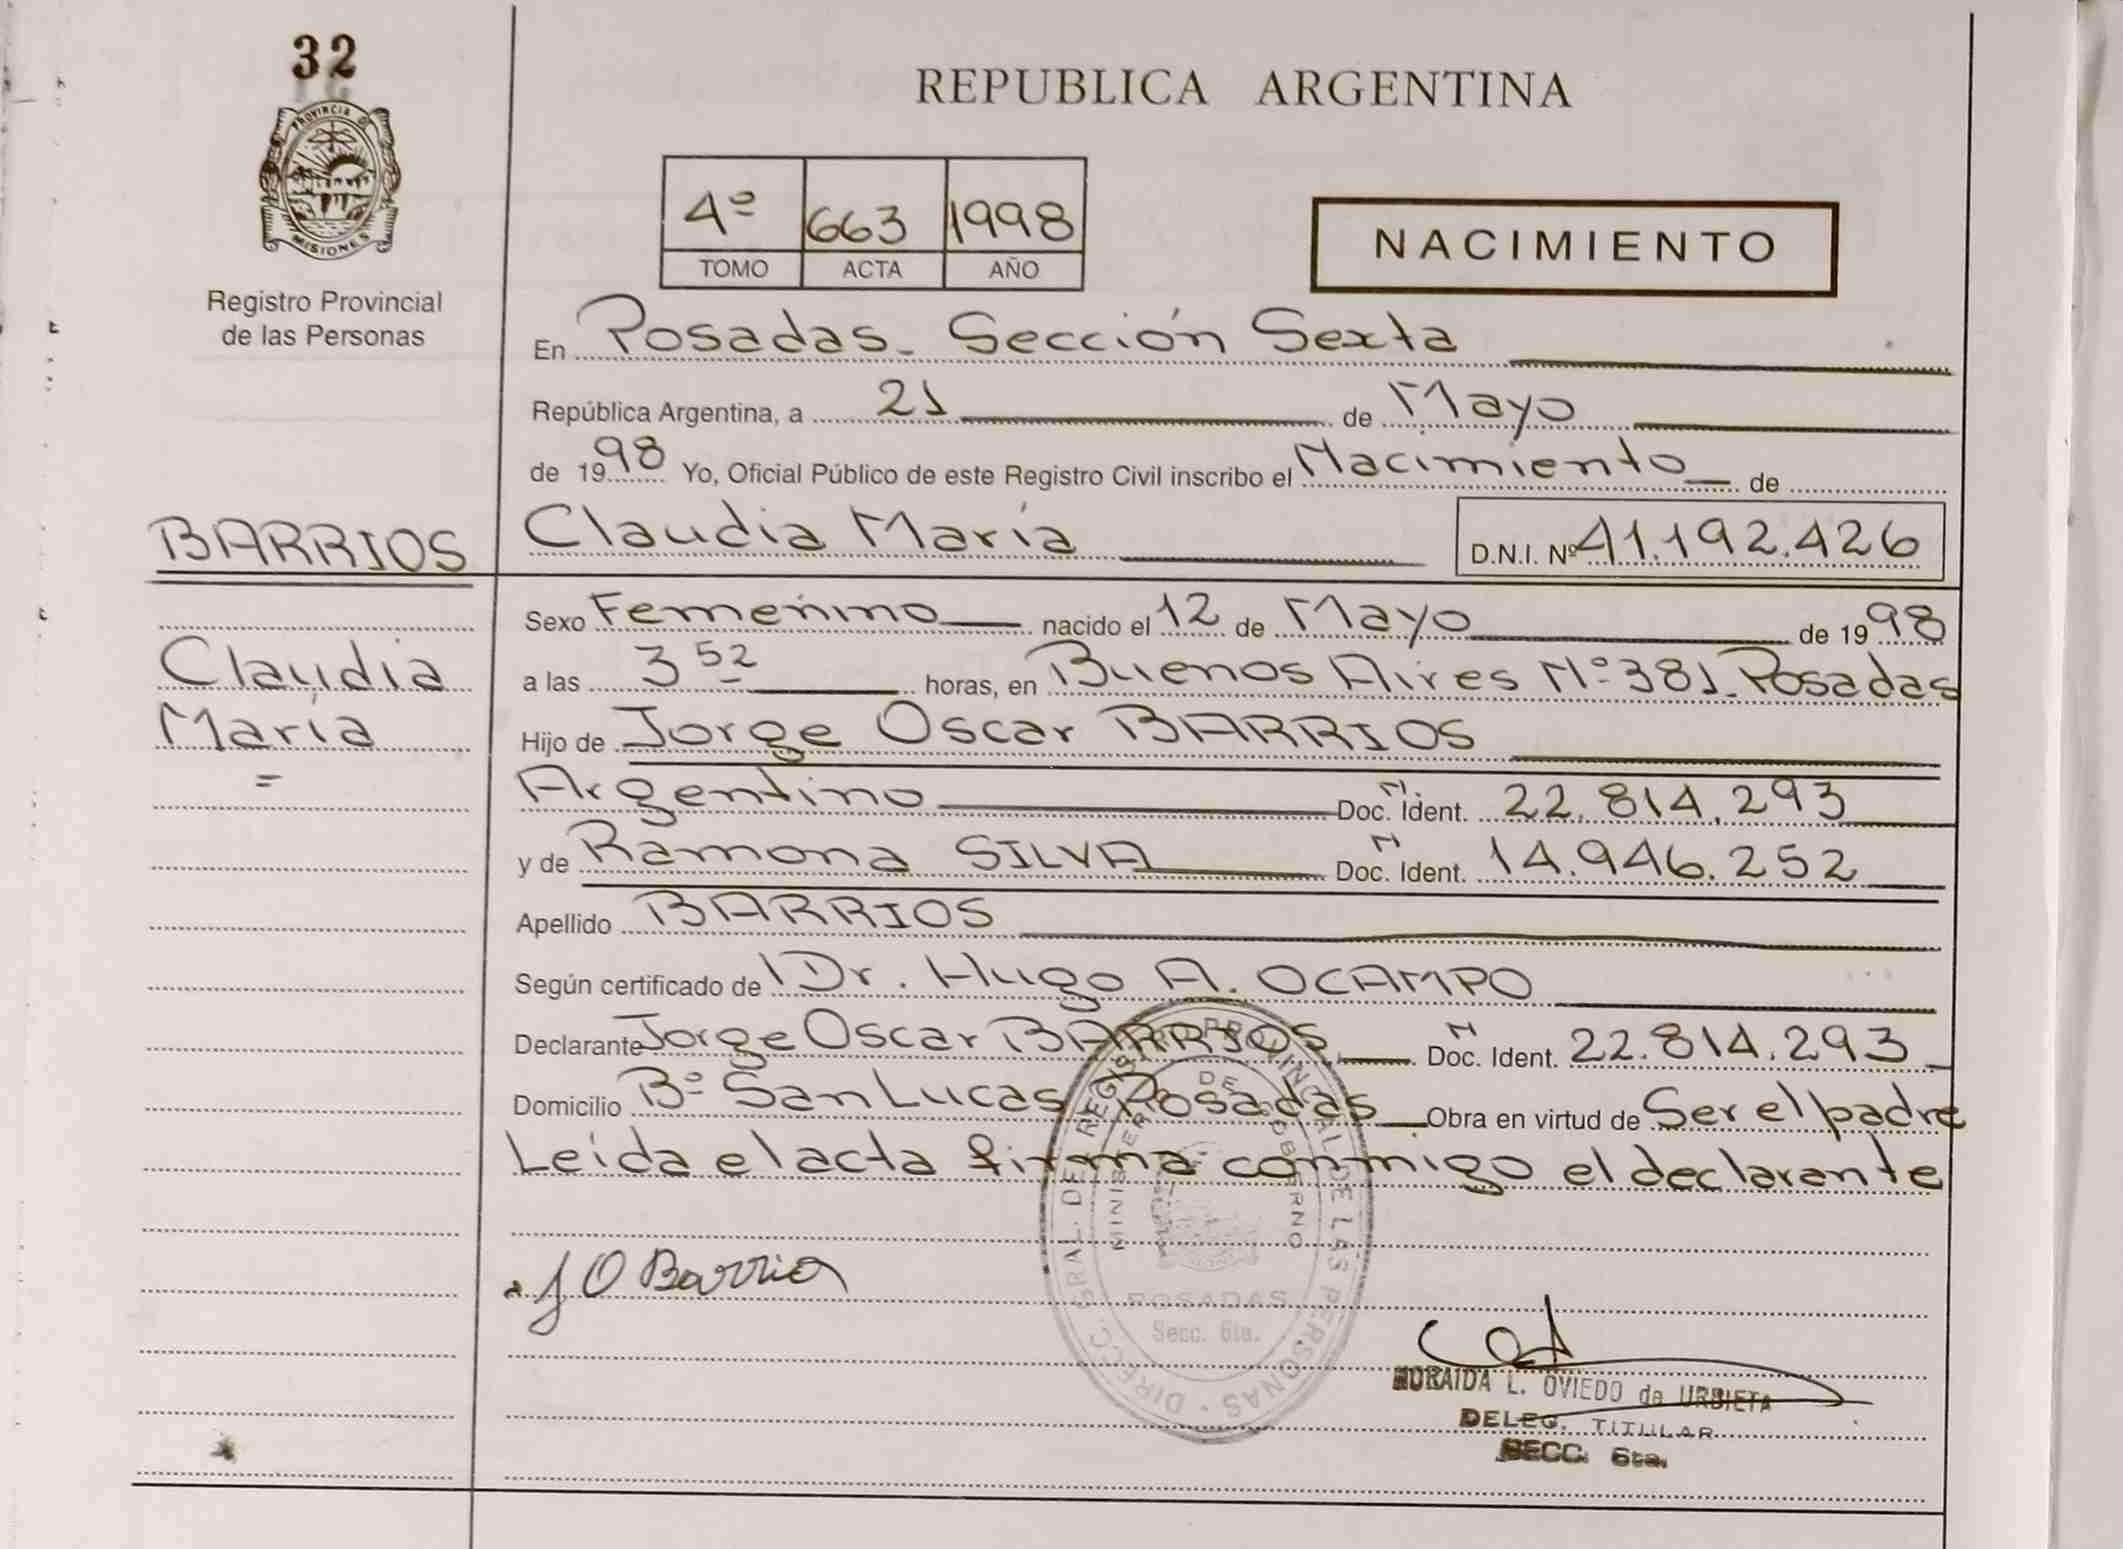 32
PROVINCIA D
MISIONES
Registro Provincial
de las Personas
REPUBLICA ARGENTINA
4º 663 1998
TOMO ACTA AÑO
NACIMIENTO
En Posadas - Sección Sexta
República Argentina, a 21 de Mayo
de 1998 Yo, Oficial Público de este Registro Civil inscribo el Nacimiento de
BARRIOS Claudia María D.N.I. Nº 41.192.426
Sexo Femenino nacido el 12 de Mayo de 1998
Claudia
a las 3 52 horas, en Buenos Aires Nº 381 - Posadas
María
Hijo de Jorge Oscar BARRIOS
=
Argentino Doc. N. Ident. 22.814.293
y de Ramona SILVA Doc. N Ident. 14.946.252
Apellido BARRIOS
Según certificado de Dr. Hugo A. OCAMPO
Declarante Jorge Oscar BARRIOS Doc. N Ident. 22.814.293
Domicilio Bº San Lucas Posadas Obra en virtud de Ser el padre
Leída el acta firma conmigo el declarante
DIRECC. GRAL. DE REGISTRO PROVINCIAL DE LAS PERSONAS
MINISTERIO DE GOBIERNO
POSADAS
Secc. 6ta.
J O Barrios
L. OVIEDO de URBIETA
DELEG. TITULAR
SECC. 6ta.